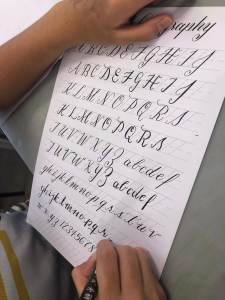 graphy
A B C D E F G H I J
A B C D E F G H I J
K L M N O P Q R S
K L M N O P Q R S
T U V W X Y Z a b c d e f
T U V W X Y Z a b c d e f
g h i j k l m n o p q r s t u v
g h i j k l m n o p q r
w x y z 1 2 3 4 5 6 7 8